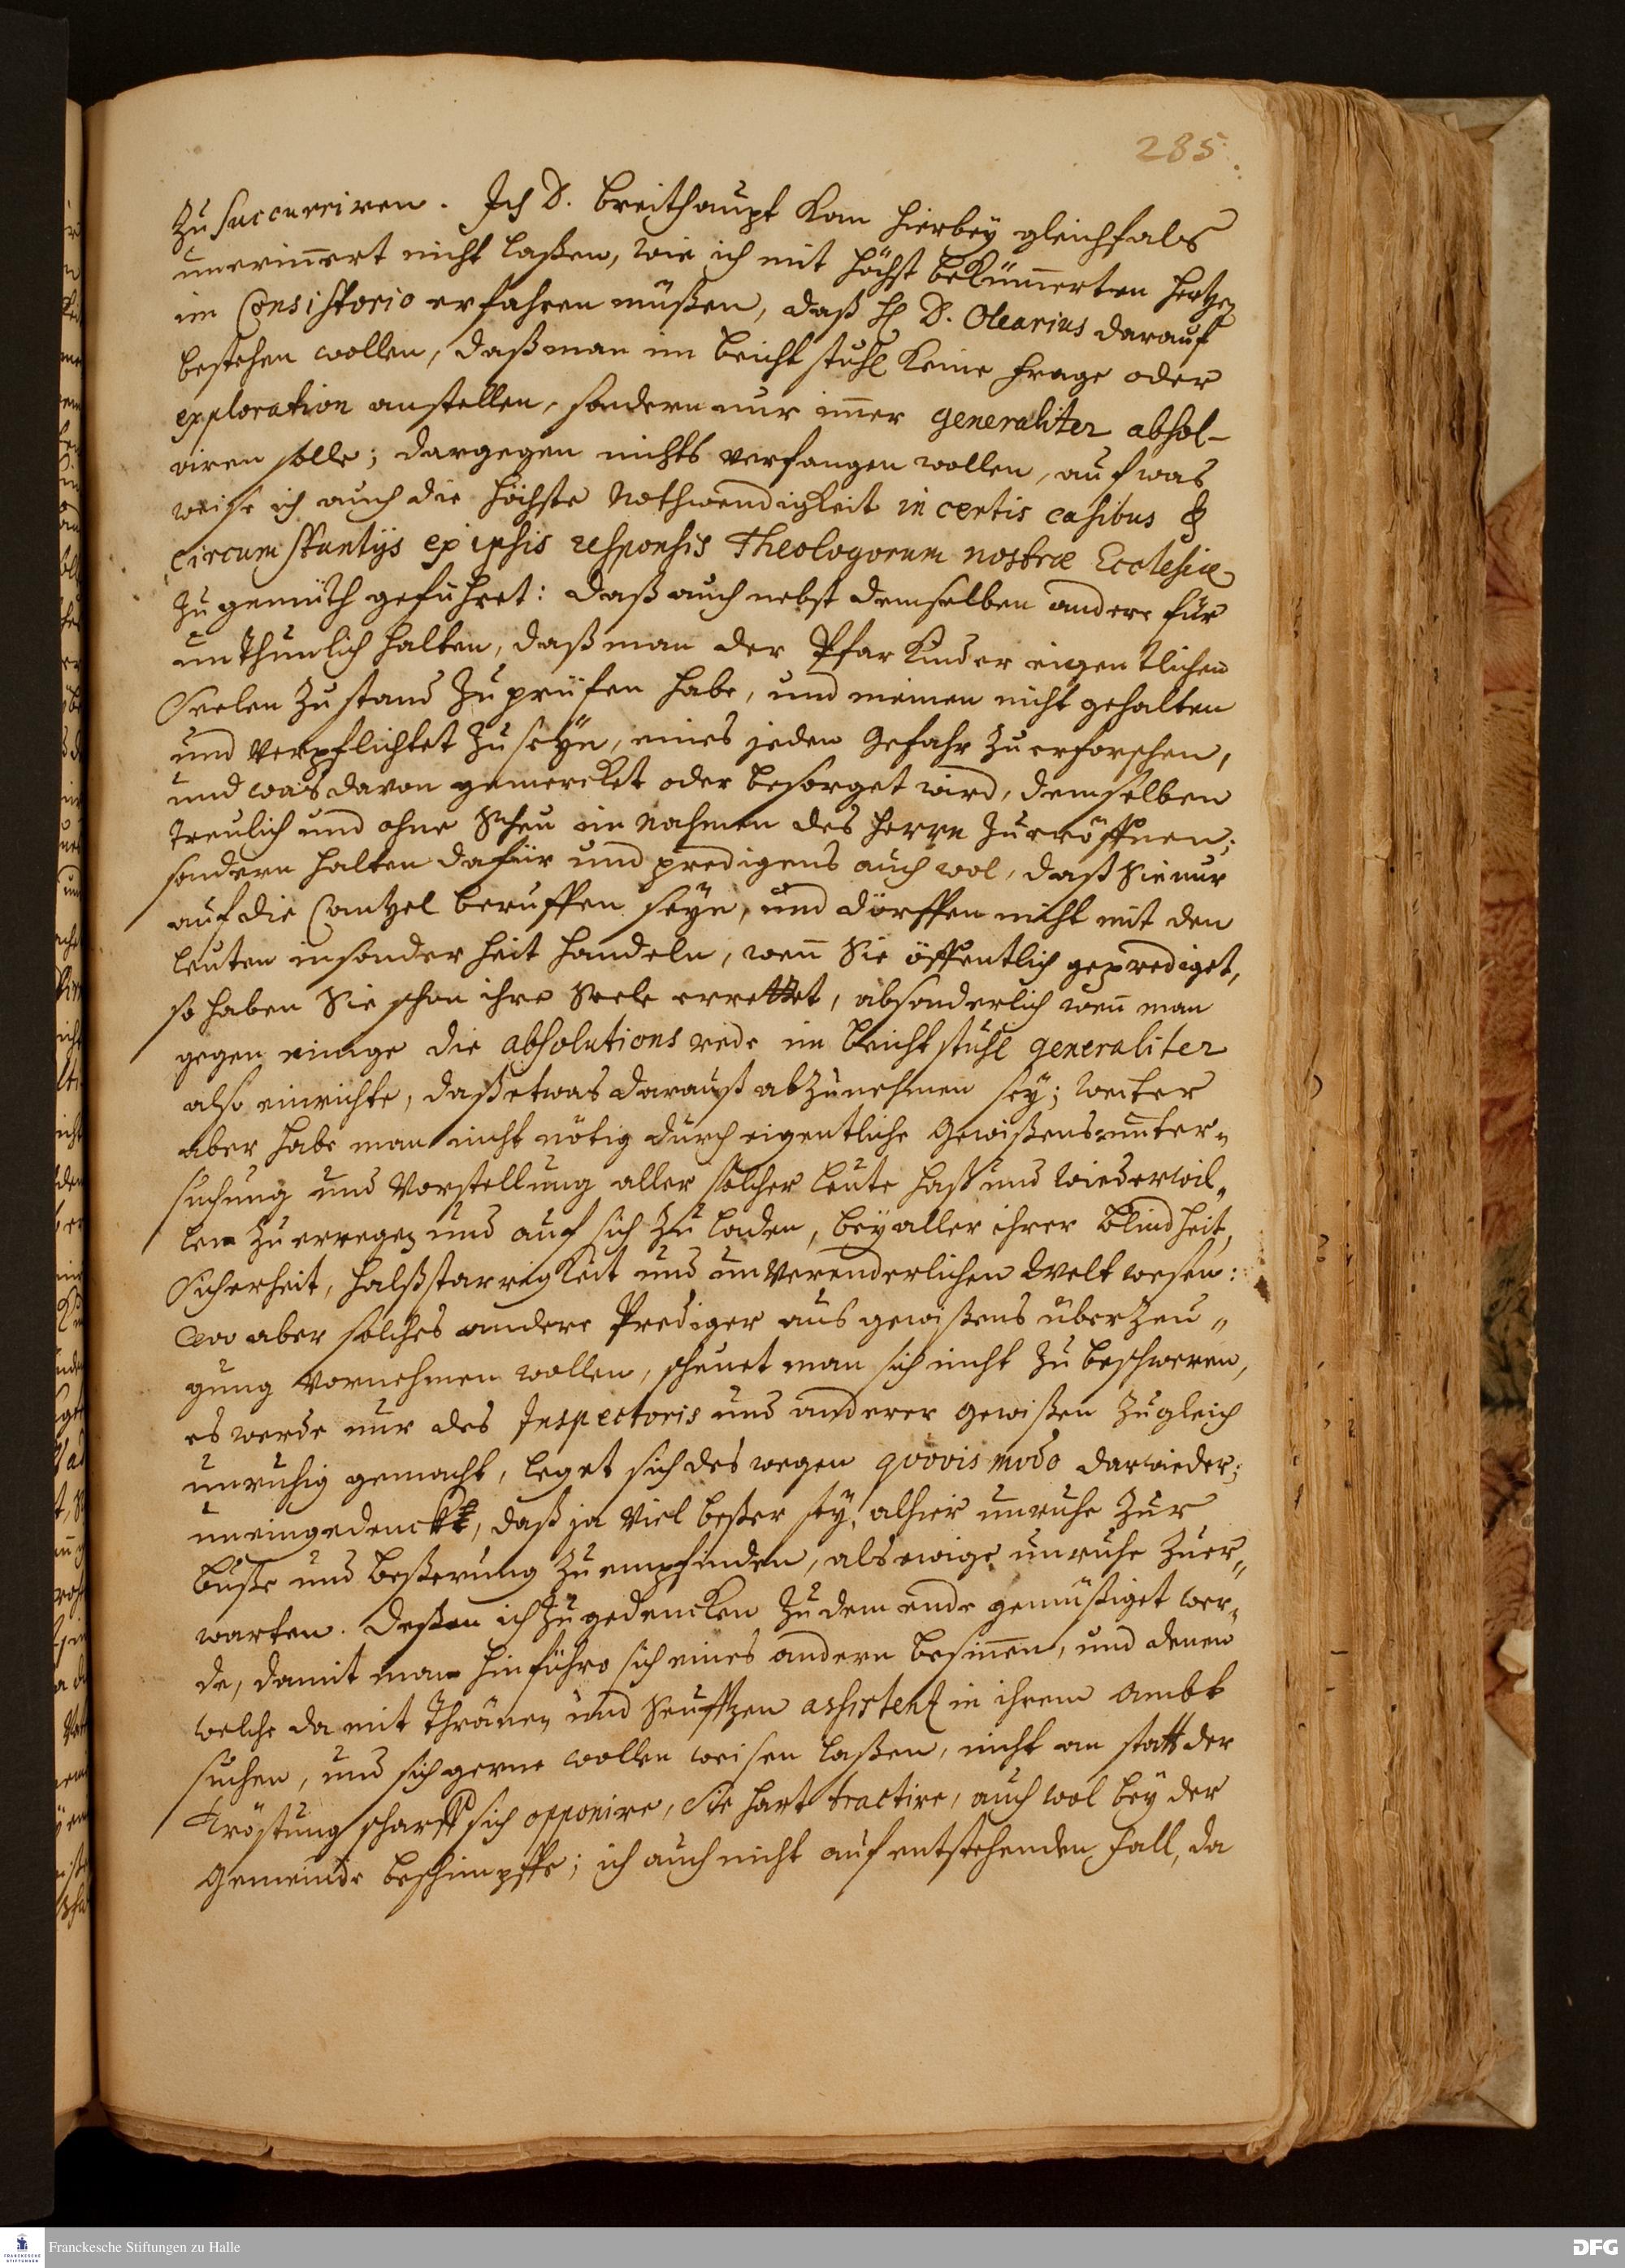 285.
zu succurriren. Ich D. Breithaupt kan hierbey gleichfals
unerin̄ert nicht laßen, wie ich mit höchst bekům̄erten Hertzen
im Consistorio erfahren müßen, daß H. D. Olearius darauf
bestehen wollen, daß man im Beichtstuhl keine Frage oder
exploration anstellen, sondern nur im̄er generaliter absol-
viren solle; dargegen nichts verfangen wollen, auf was
weise ich auch die höchste Nothwendigkeit in certis casibus &
circumstantijs ex ipsis responsis Theologorum nostræ Ecclesiæ
zu gemüth geführet: daß auch nebst demselben andere für
unthunlich halten, daß man der Pfarkinder eigentlichen
Seelen Zustand zu prüfen habe, und meinen nicht gehalten
und verpflichtet zu seyn, eines jeden Gefahr zu erforschen,
und was davon gemercket oder besorget wird, demselben
treulich und ohne Scheu im Nahmen des Herrn zu eröffnen;
sondern halten dafür und predigens auch wol, daß Sie nur
auf die Cantzel beruffen seyn, und dörffen nicht mit den
Leuten insonderheit handeln, wen̄ Sie öffentlich geprediget,
so haben Sie schon ihre Seele errettet, absonderlich wen̄ man
gegen einige die absolutions rede im Beichtstuhl generaliter
also einrichte, daß etwas darauß abzunehmen sey; weiter
aber habe man nicht nötig durch eigentliche Gewißens unter„
suchung und Vorstellung aller solcher Leute haß und wiederwil„
len zu erregen und auf sich zu laden, bey aller ihrer Blindheit,
Sicherheit, Halßstarrigkeit und unverenderlichen Welt wesen:
wo aber solches andere Prediger aus gewißens überzeu„
gung vornehmen wollen, scheuet man sich nicht zu beschweren,
es werde nur des Inspectoris und anderer gewißen zugleich
unruhig gemacht, leget sich deswegen qvovis modo darwieder;
uneingedenck, daß ja viel beßer sey, alhier unruhe zur
Buße und Beßerung zu empfinden, als ewige unruhe zu er„
warten. Deßen ich zu gedencken zu dem ende gemüßiget wer„
de, damit man hinführo sich eines andern besin̄en, und denen
welche da mit Thränen und Seufftzen assistentz in ihrem Ambt
suchen, und sich gerne wollen weisen laßen, nicht an statt der
Tröstung scharff sich opponire, Sie hart tractire, auch wol bey der
Gemeinde beschimpffe; ich auch nicht auf entstehenden Fall, da
Franckesche Stiftungen zu Halle
FRANCKESCHE
STIFTUNGEN
DFG